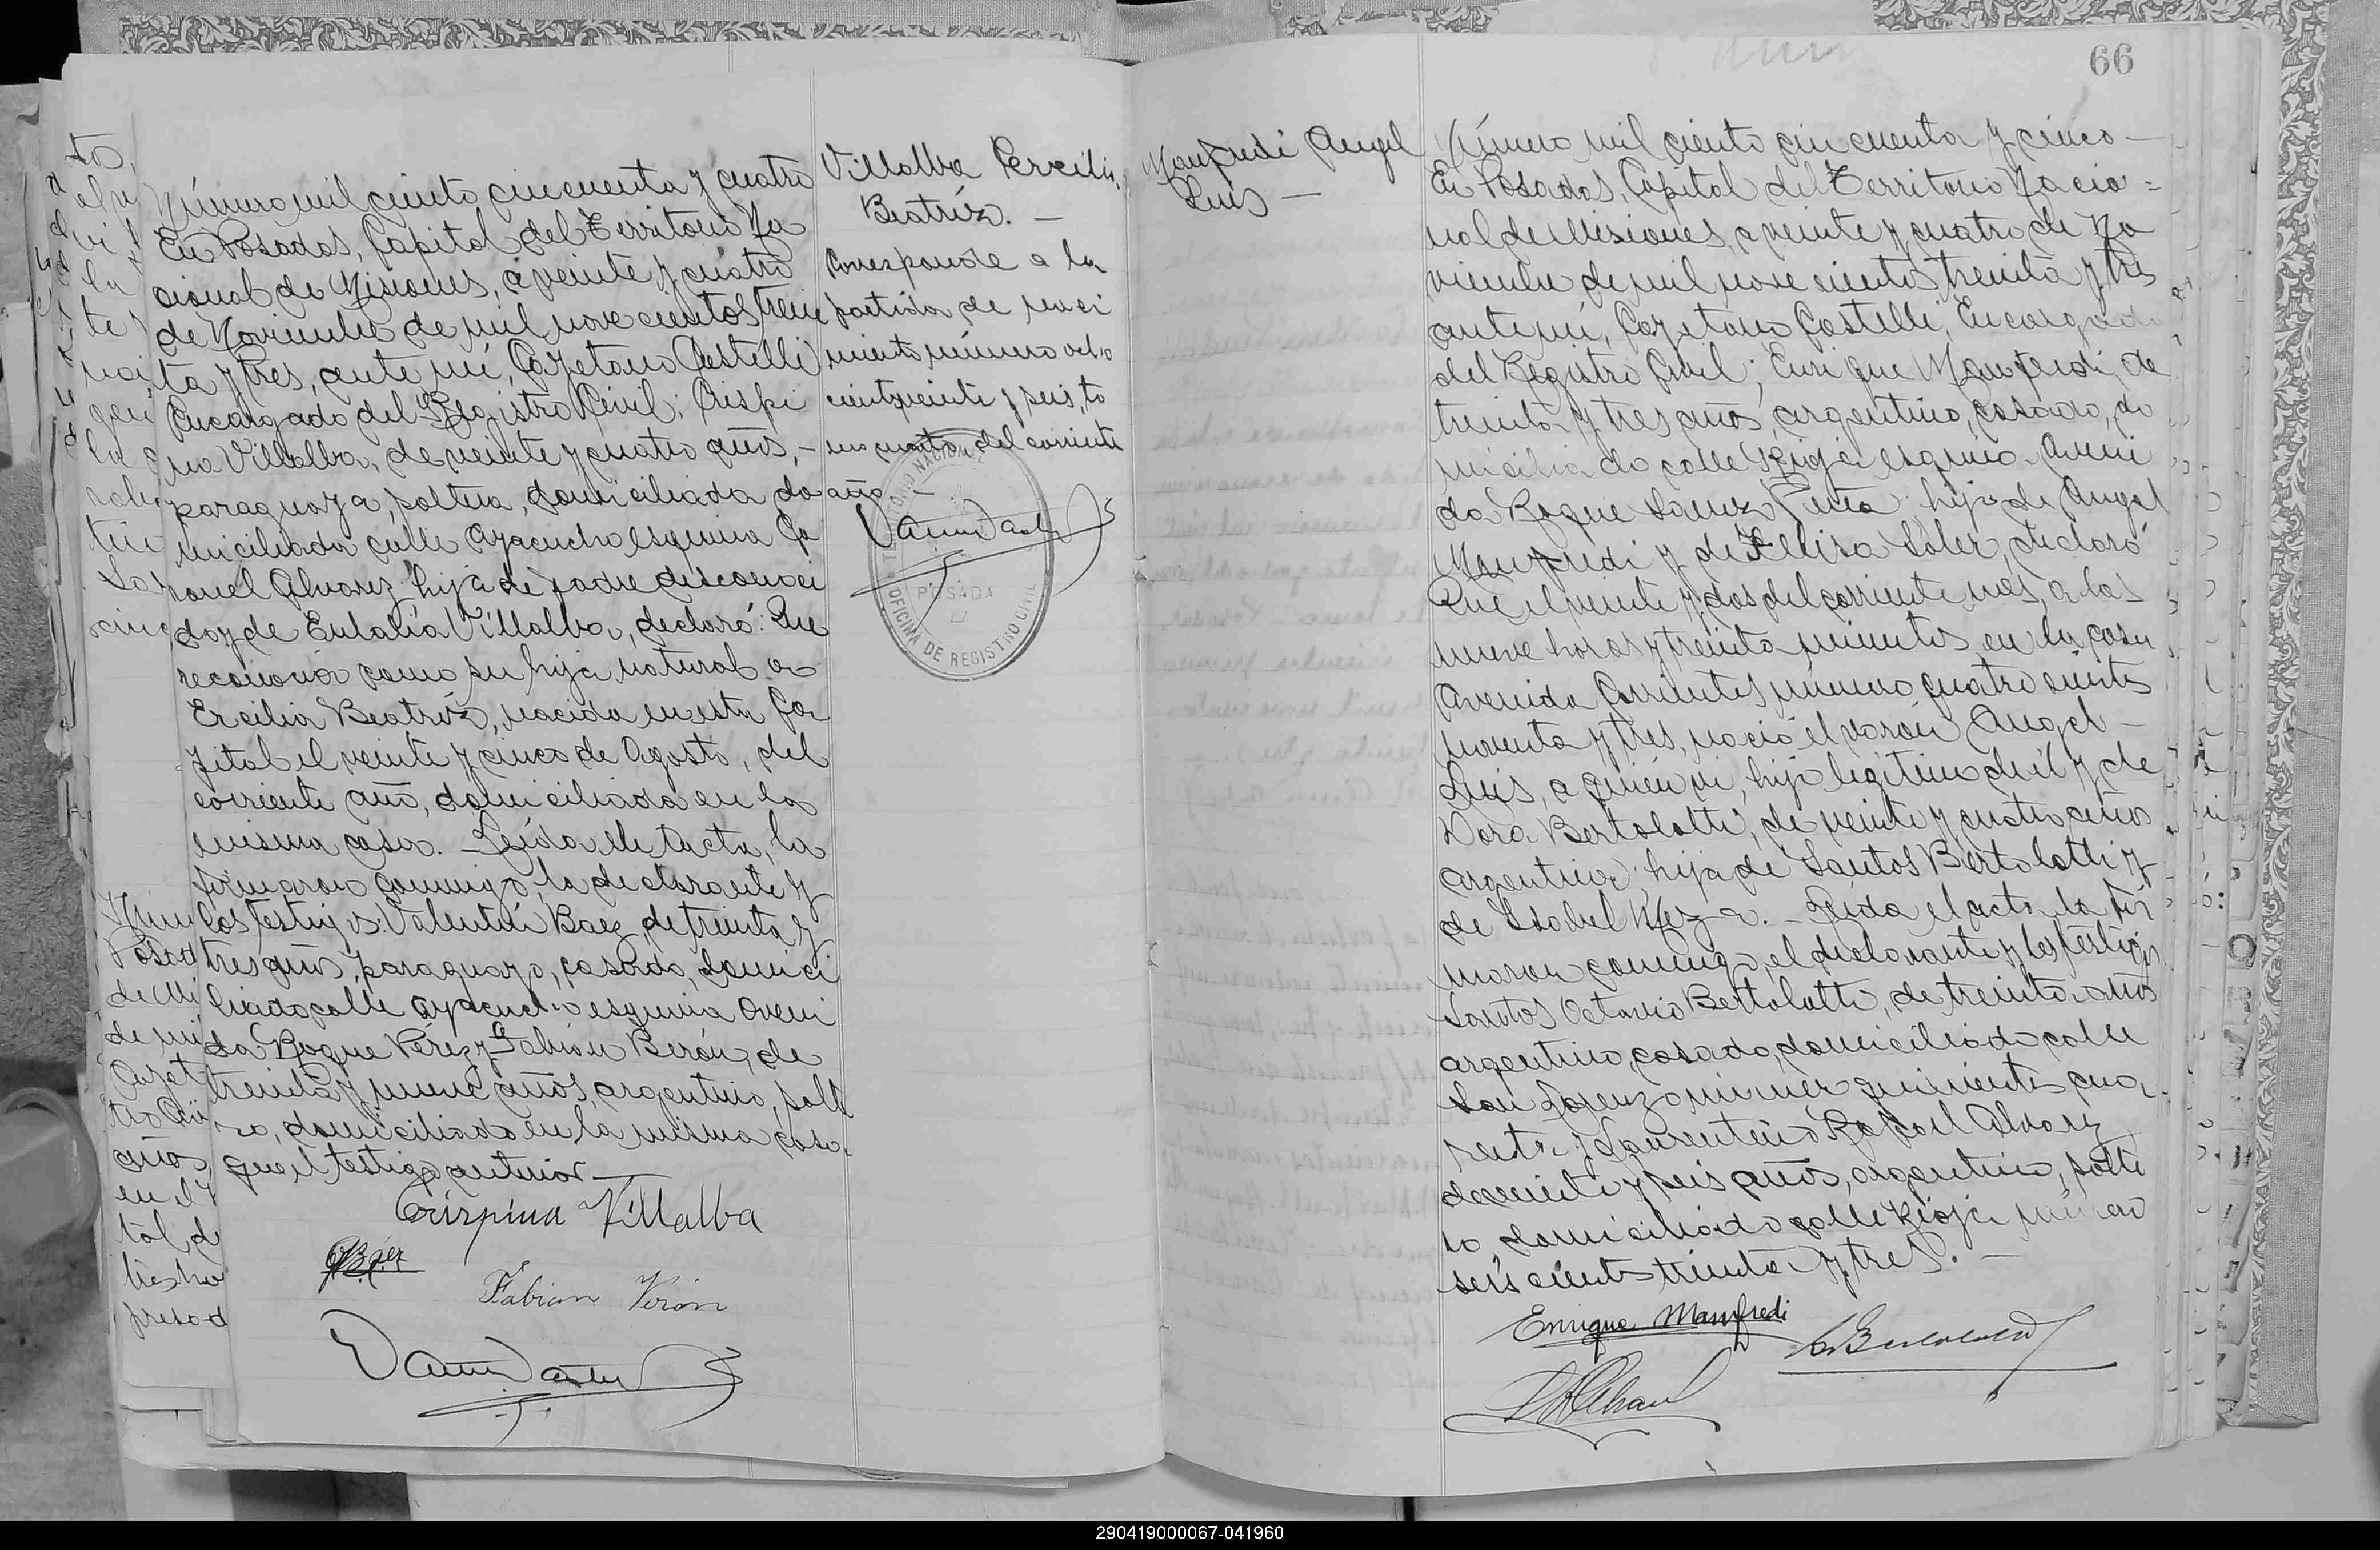 Número mil ciento cincuenta y cuatro
En Posadas, Capital del Territorio Na
cional de Misiones, a veinte y cuatro
de Noviembre de mil nove cientos trein
ta y tres, ante mí, Cayetano Castelli
Encargado del Registro Civil; Crispi
na Villalba, de veinte y cuatro años, -
paraguaya, soltera, domiciliada do
miciliada calle Ayacucho esquina Co
ronel Alvarez hija de padre desconoci
do y de Eulalia Villalba, declaró: Que
reconocía como su hija natural a
Ercilia Beatriz, nacida en esta Ca
pital el veinte y cinco de Agosto, del
corriente año, domiciliada en la
misma casa. - Leída el acta, la
firmaron conmigo, la declarante y
los testigos: Valentín Baez, de treinta y
tres años, paraguayo, casado, domici
liado calle Ayacucho esquina Aveni
da Roque Pérez y Fabián Berón, de
treinta y nueve años, argentino, solte
ro, domiciliado en la misma casa
que el testigo anterior. -
Crispina Villalba
Báez
Fabian Verón
Villalba Ercilia
Beatriz. -
Corresponde a la
partida de naci
miento número ocho
cientos veinte y seis, to
mo cuarto del corriente
año. -
TERRITORIO NACIONAL
POSADA
OFICINA DE REGISTRO CIVIL
66
Manfredi Angel
Luis -
Número mil ciento cincuenta y cinco -
En Posadas, Capital del Territorio Nacio=
nal de Misiones, a veinte y cuatro de No
viembre de mil nove cientos treinta y tres
ante mí, Cayetano Castelli, Encargado
del Registro Civil; Enrique Manfredi, de
treinta y tres años, argentino, casado, do
miciliado calle Rioja esquina Aveni
da Roque Saenz Peña hijo de Angel
Manfredi y de Elisa Soler, declaró
Que el veinte y dos del corriente mes, a las
nueve horas y treinta minutos en la casa
Avenida Corrientes número cuatro cientos
noventa y tres, nació el varón Angel -
Luis, a quién vi, hijo legítimo de él y de
Dora Bertolotti, de veinte y cuatro años
argentina, hija de Santos Bertolotti y
de Isabel Meza. - Leída el acta, la fir
maron conmigo, el declarante y los testigos
Santos Octavio Bertolotti, de treinta años
argentino, casado, domiciliado calle
San Lorenzo número quinientos cua
renta y Laurentino Rafael Alvarez
de veinte y seis años, argentino, solte
ro, domiciliado calle Rioja número
seis cientos treinta y tres. -
Enrique Manfredi
290419000067-041960